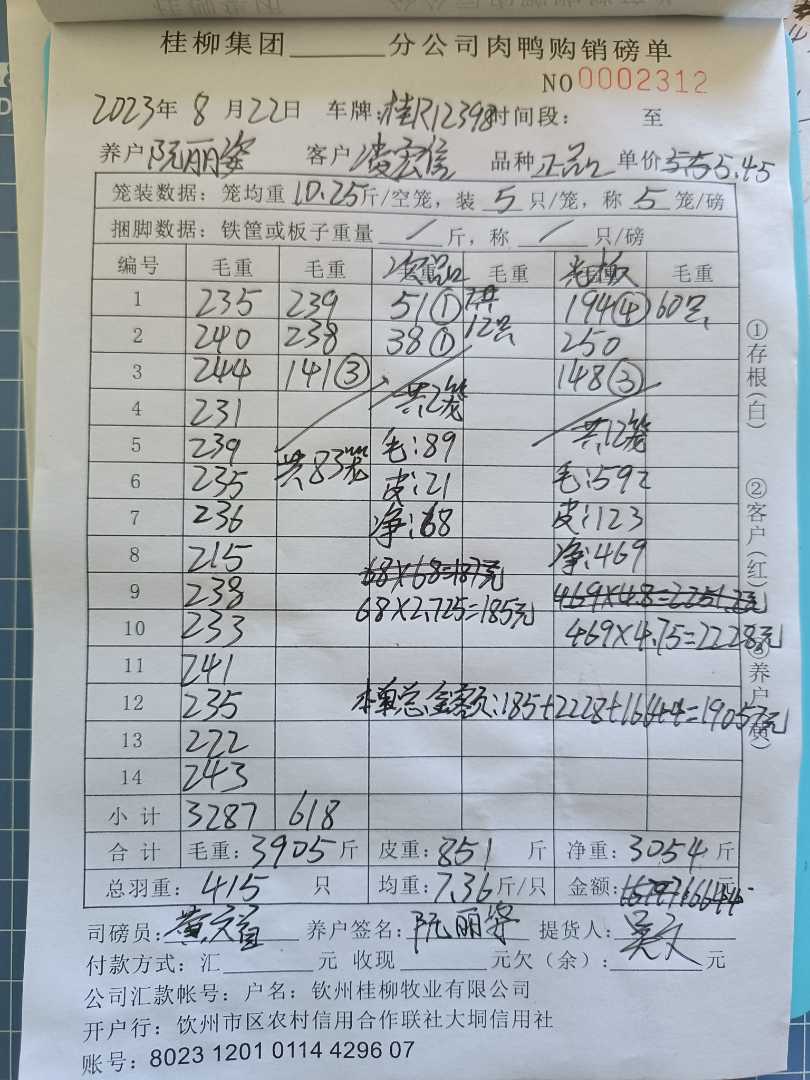 桂柳集团______分公司肉鸭购销磅单
NO 0002312
2023年 8 月 22日 车牌:桂R12398 时间段: 至
养户 阮丽姿 客户 凌宏信 品种 正品 单价 5.45
笼装数据: 笼均重 10.25 斤/空笼, 装 5 只/笼, 称 5 笼/磅
捆脚数据: 铁筐或板子重量 / 斤, 称 / 只/磅
编号 毛重 毛重 次品 毛重 毛重
1 235 239 51① 共 194④ 60只
2 240 238 38① 12只 250
3 244 141③ 148③
4 231 共2笼
5 239 毛:89 共12笼
6 235 共83笼 皮:21 毛:592
7 236 净:68 皮:123
8 215 净:469
9 238 469×4.8=2251.2元
10 233 68×2.725=185元 469×4.75=2228元
11 241
12 235 本单总金额:185+2228+16644=19057元
13 222
14 243
小计 3287 618
合计 毛重: 3905 斤 皮重: 851 斤 净重: 3054 斤
总羽重: 415 只 均重: 7.36 斤/只 金额: 16644 元
司磅员: 养户签名: 阮丽姿 提货人:
付款方式: 汇______元 收现______元欠(余):______元
公司汇款帐号: 户名: 钦州桂柳牧业有限公司
开户行: 钦州市区农村信用合作联社大垌信用社
账号: 8023 1201 0114 4296 07
①存根(白)
②客户(红)
③养户(黄)